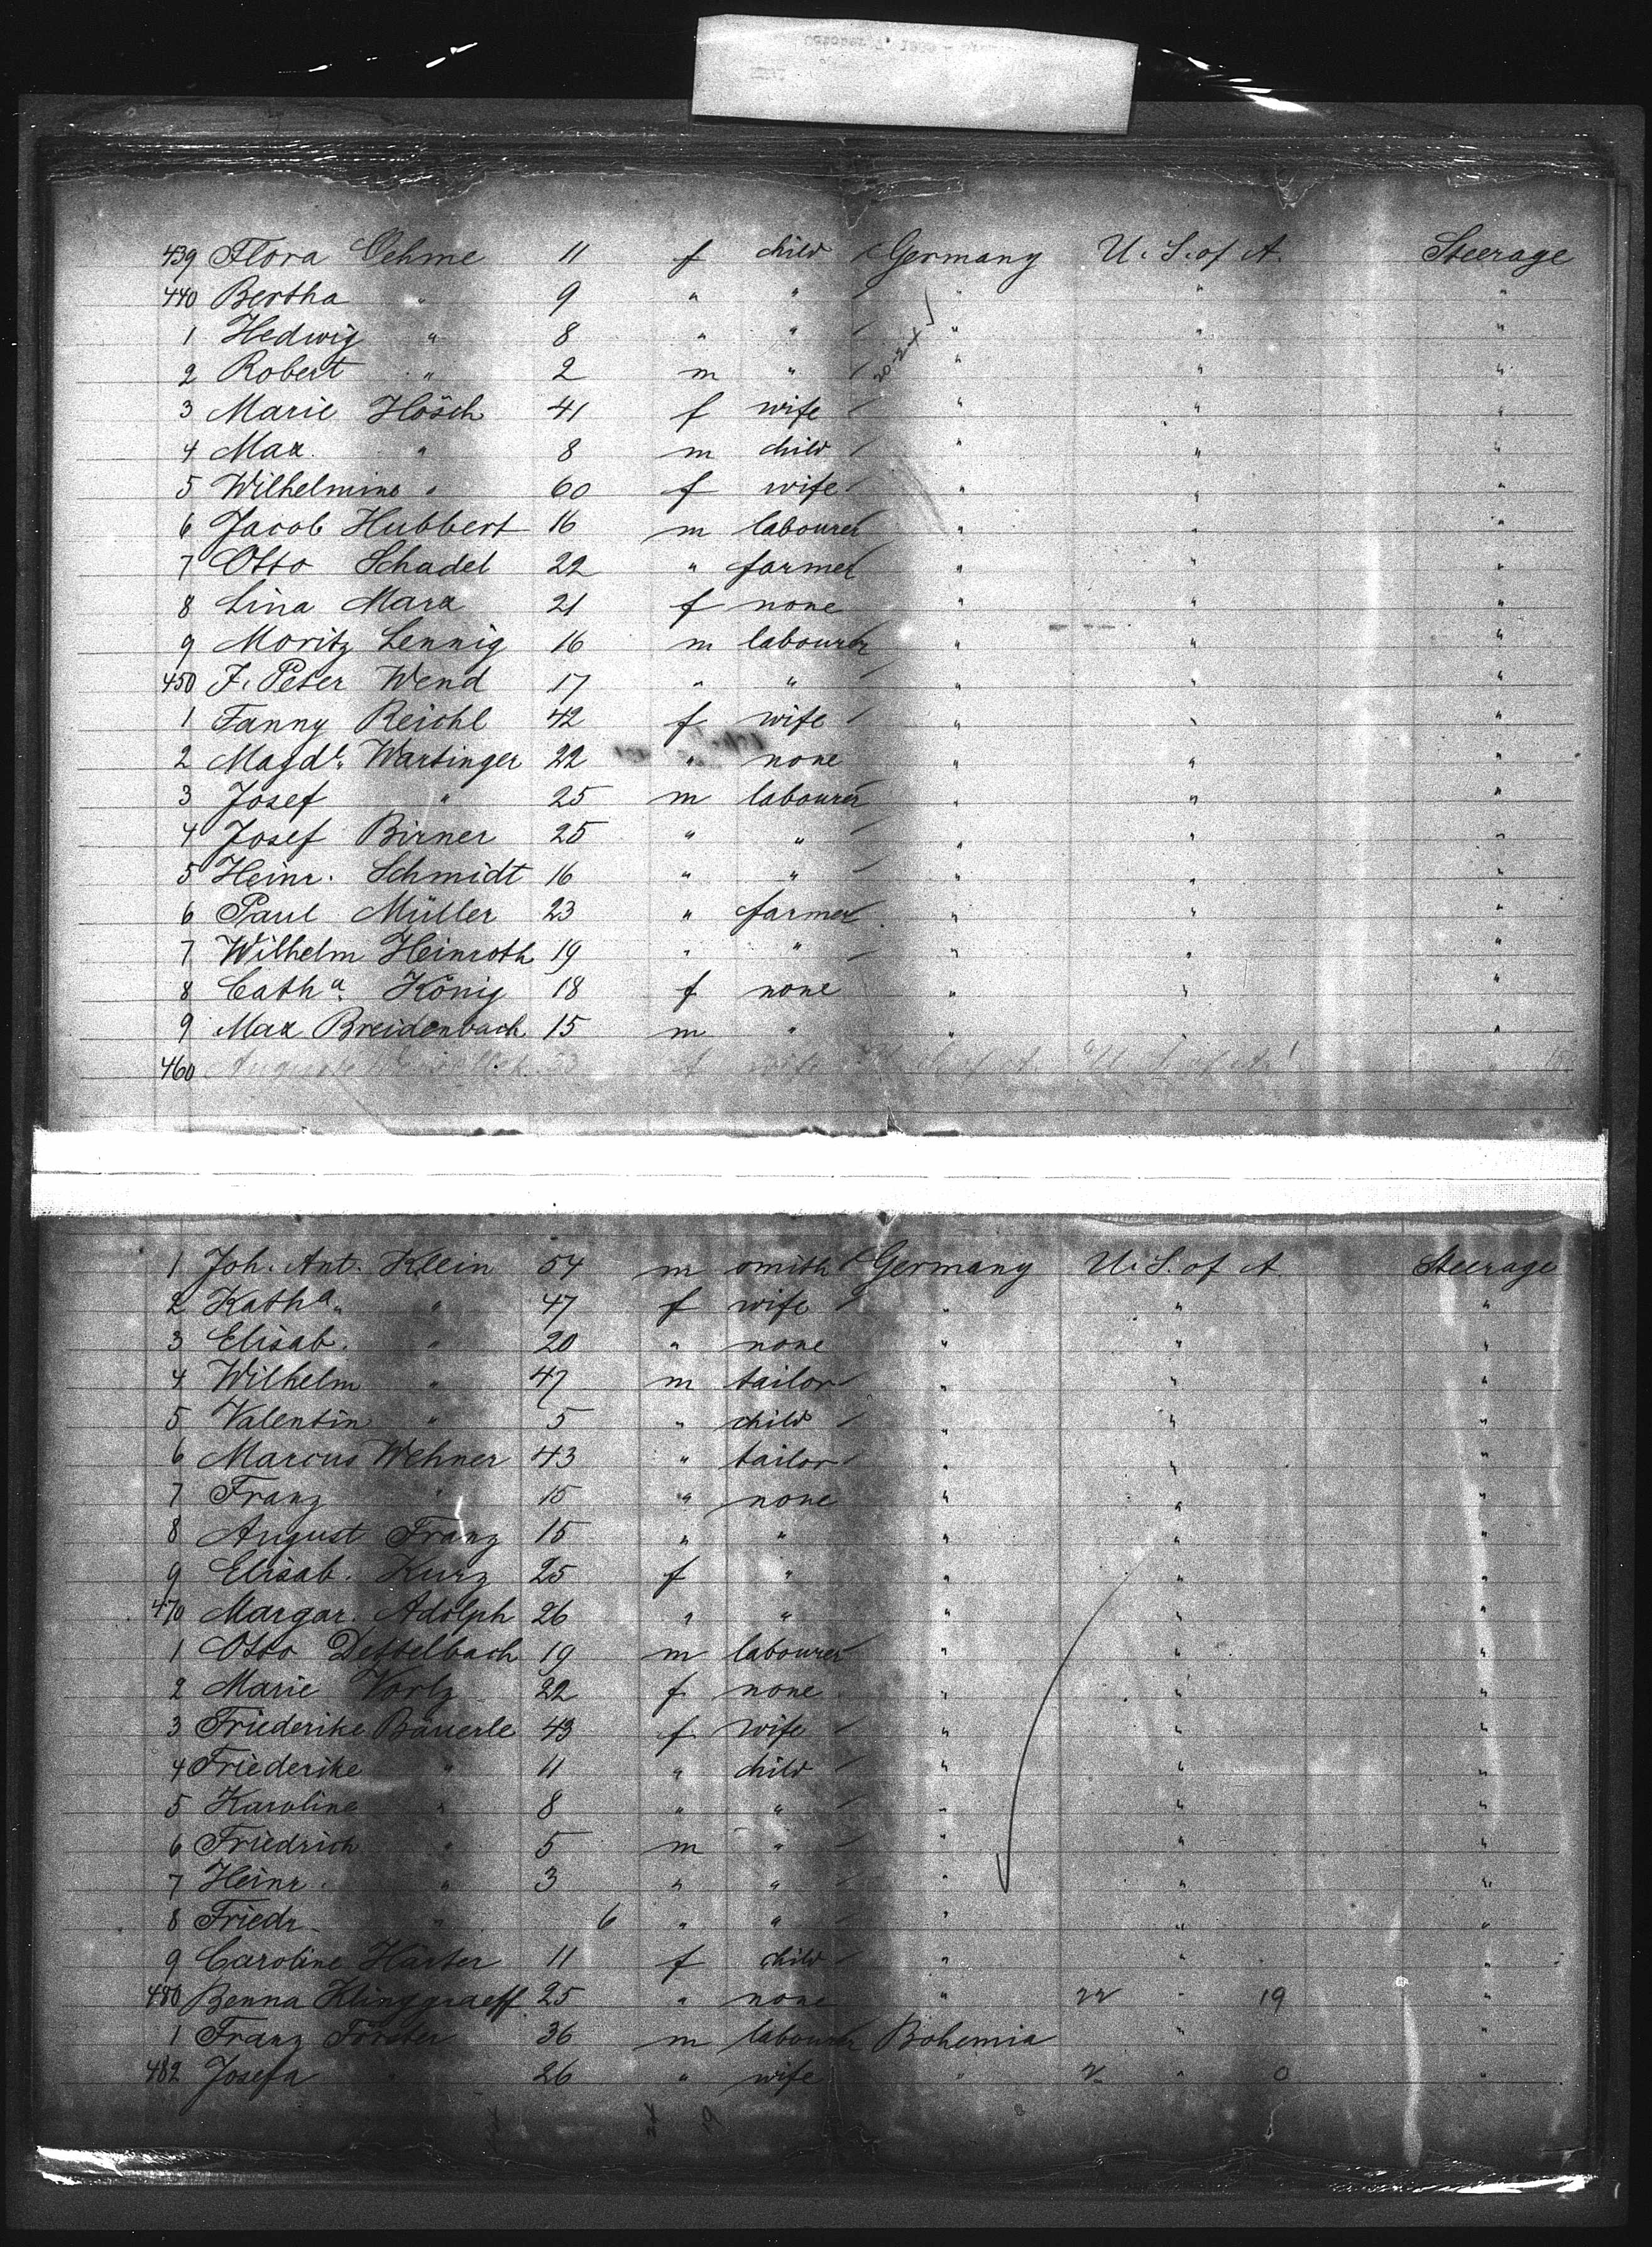 439 Flora Oehme 11 f child Germany U. S. of A. Steerage
440 Bertha " 9 " " " " "
1 Hedwig " 8 " " " " "
2 Robert " 2 m " " " "
3 Marie Hösch 41 f wife " " "
4 Max " 8 m child " " "
5 Wilhelmine " 60 f wife " " "
6 Jacob Hubbert 16 m labourer " " "
7 Otto Schadel 22 " farmer " " "
8 Lina Marx 21 f none " " "
9 Moritz Lennig 16 m labourer " " "
450 J. Peter Wend 17 " " " " "
1 Fanny Reichl 42 f wife " " "
2 Magd. Wartinger 22 " none " " "
3 Josef " 25 m labourer " " "
4 Josef Birner 25 " " " " "
5 Heinr. Schmidt 16 " " " " "
6 Paul Müller 23 " farmer " " "
7 Wilhelm Heinroth 19 " " " " "
8 Catha. König 18 f none " " "
9 Max Breidenbach 15 m " " " "
460 Auguste f wife U. S. of A. U. S. of A. "
1 Joh. Ant. Klein 54 m smith Germany U. S. of A. Steerage
2 Katha. " 47 f wife " " "
3 Elisab. " 20 " none " " "
4 Wilhelm " 47 m tailor " " "
5 Valentin " 5 " child " " "
6 Marcus Wehner 43 " tailor " " "
7 Franz " 15 " none " " "
8 August Franz 15 " " " " "
9 Elisab. Kurz 25 f " " " "
470 Margar. Adolph 26 " " " " "
1 Otto Dettelbach 19 m labourer " " "
2 Marie Vortz 22 f none " " "
3 Friederike Bäuerle 43 f wife " " "
4 Friederike " 11 " child " " "
5 Karoline " 8 " " " " "
6 Friedrich " 5 m " " " "
7 Heinr. " 3 " " " " "
8 Friedr. " 6 " " " " "
9 Caroline Härter 11 f child " " "
480 Benna Klinggraeff 25 " none " " 19 "
1 Franz Förster 36 m labourer Bohemia " "
482 Josefa " 26 " wife " " 0 "